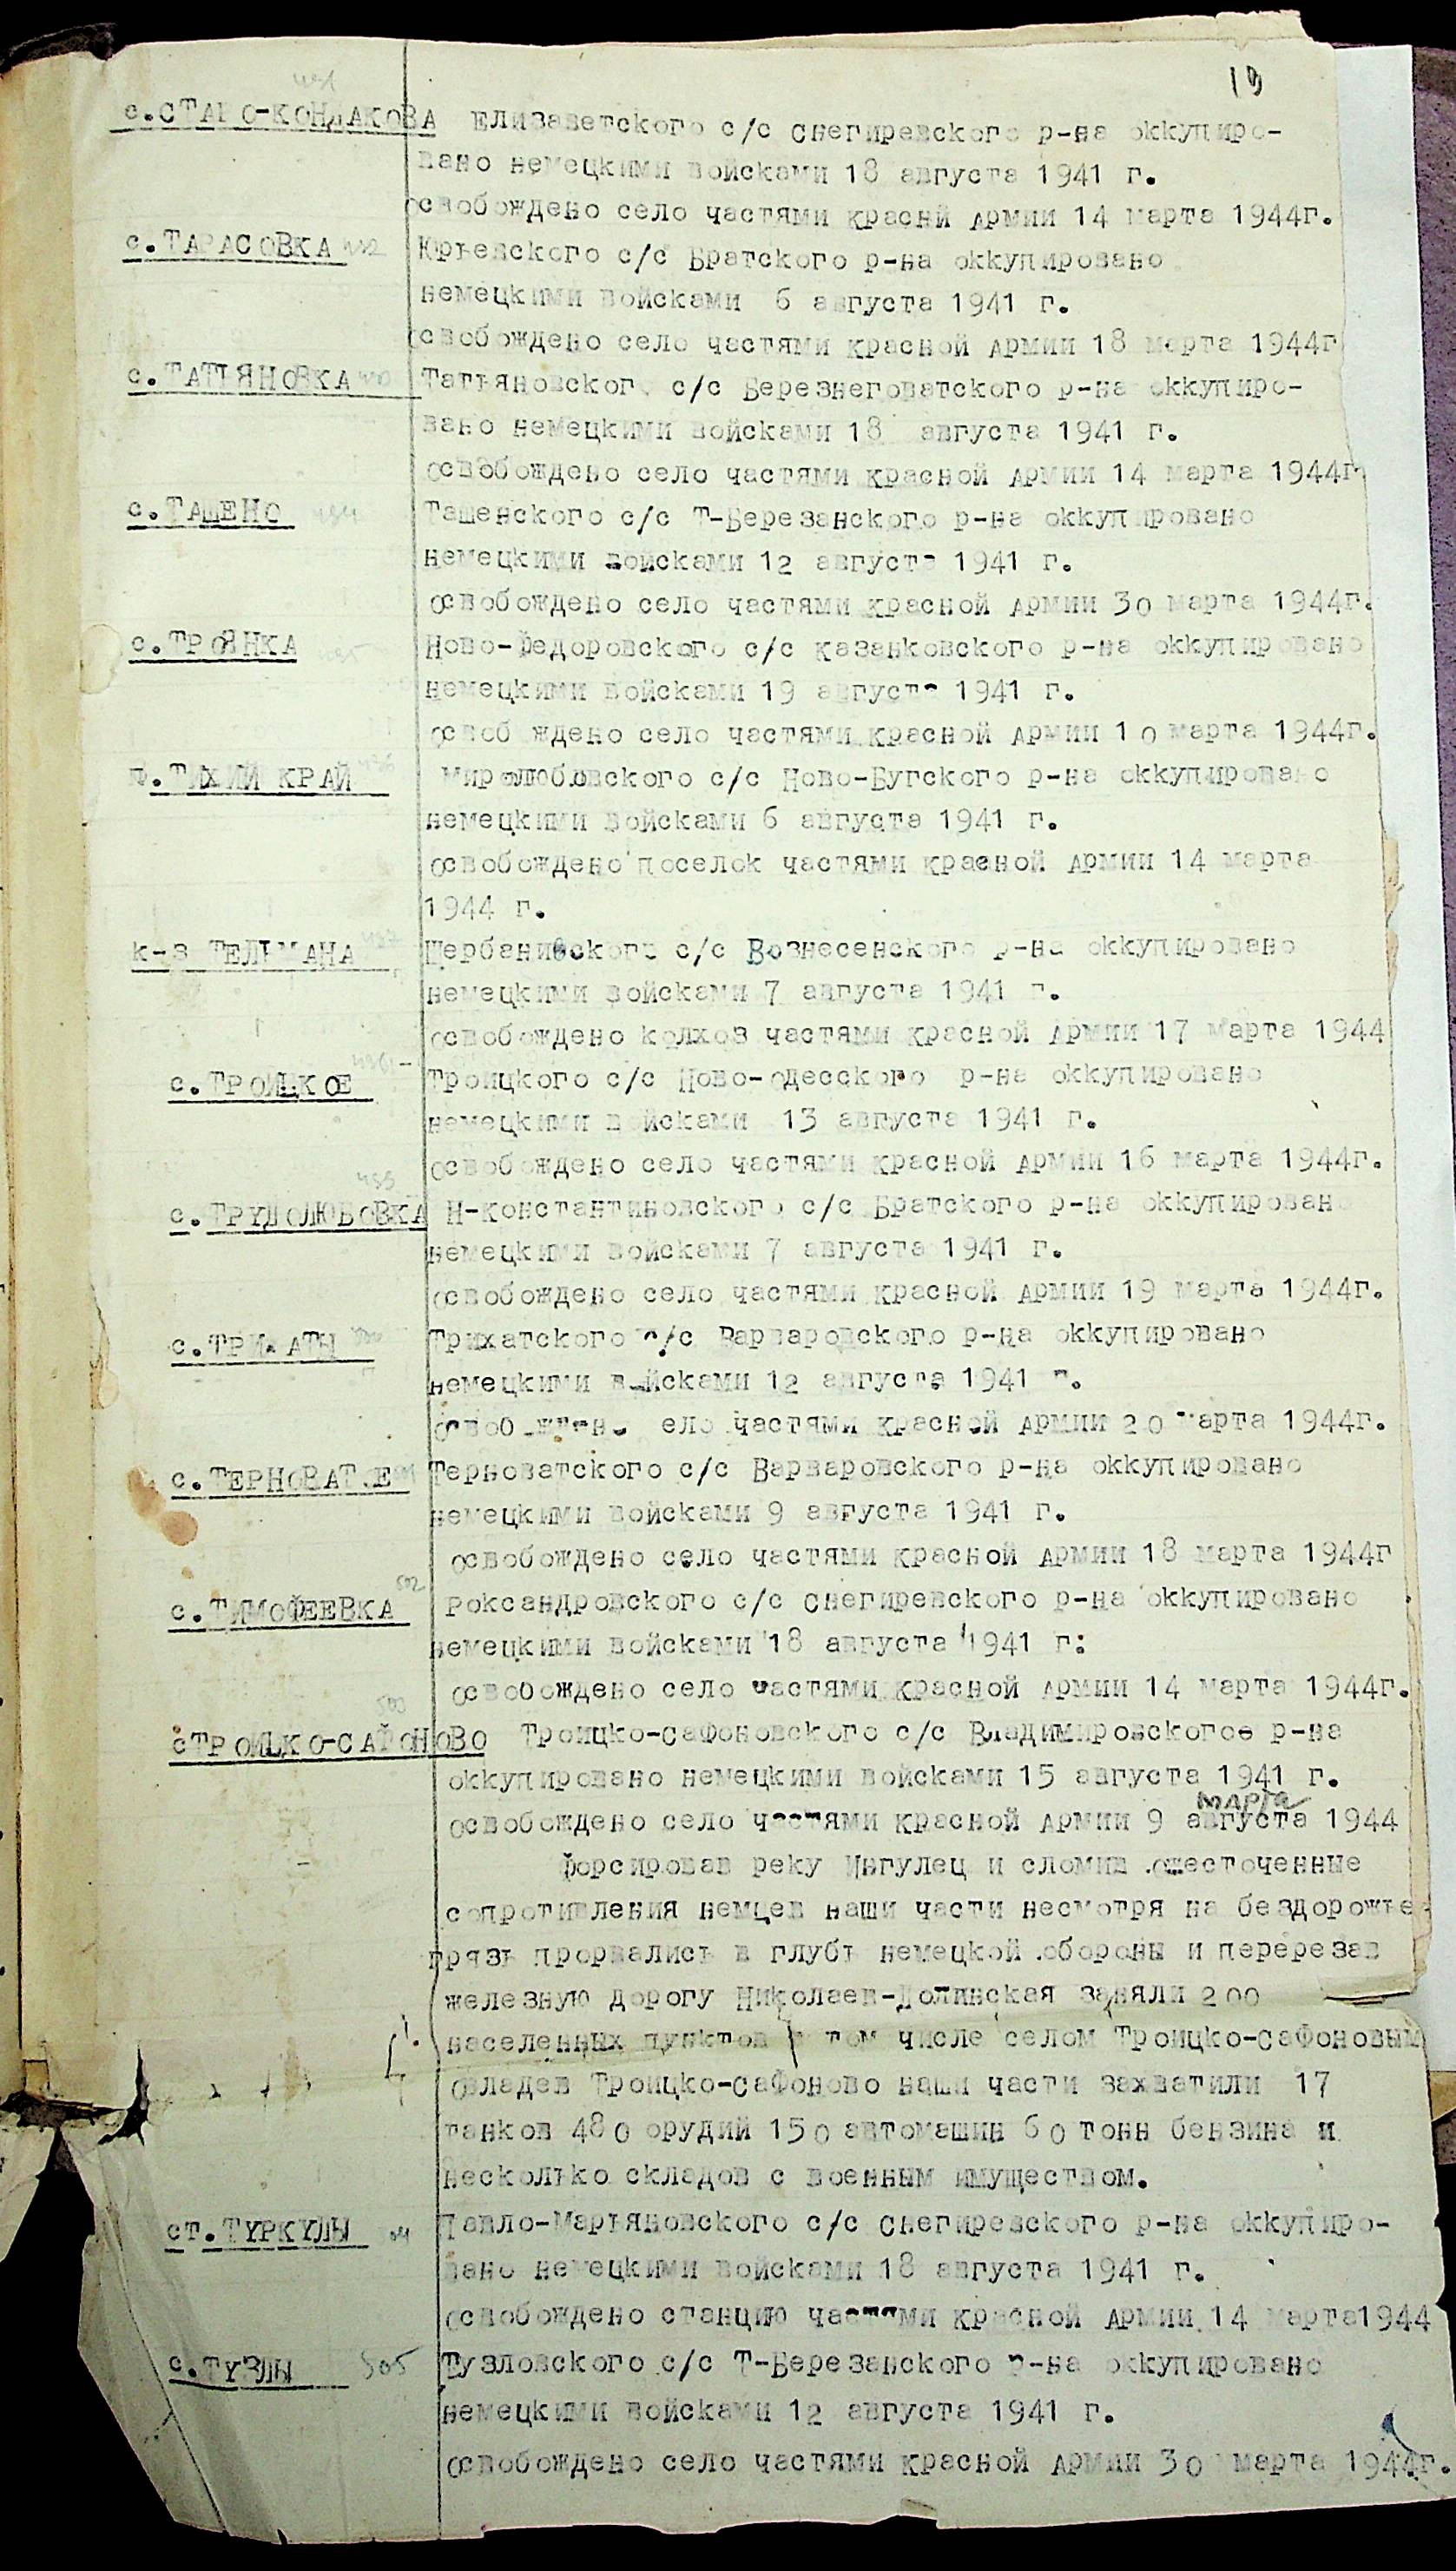 19
491
с.СТАРО-КОНДАКОВА Елизаветского с/с Снегиревского р-на оккупиро-
вано немецкими войсками 18 августа 1941 г.
освобождено село частями красни Армии 14 марта 1944г.
с.ТАРАСОВКА 492 Юрьевского с/с Братского р-на оккупировано
немецкими войсками 6 августа 1941 г.
освобождено село частями красной Армии 18 марта 1944г
с.ТАТЬЯНОВКА 493 Татьяновског с/с Березнеговатского р-на оккупиро-
вано немецкими войсками 18 августа 1941 г.
освобождено село частями красной Армии 14 марта 1944г.
с.ТАШЕНО 494 Ташенского с/с Т-Березанского р-на оккупировано
немецкими войсками 12 августа 1941 г.
освобождено село частями красной Армии 30 марта 1944г.
с.ТРОЯНКА 495 Ново-Федоровского с/с казанковского р-на оккупировано
немецкими войсками 19 августа 1941 г.
освоб ждено село частями красной Армии 10 марта 1944г.
п.ТИХИЙ КРАЙ 496 Миролюбовского с/с Ново-Бугского р-на оккупировано
немецкими войсками 6 августа 1941 г.
освобождено поселок частями красной Армии 14 марта
1944 г.
к-з ТЕЛЬМАНА 497 Щербанивского с/с Вознесенского р-на оккупировано
немецкими войсками 7 августа 1941 г.
освобождено колхоз частями красной Армии 17 марта 1944
498
с.ТРОИЦКОЕ Троицкого с/с Ново-одесского р-на оккупировано
немецкими войсками 13 августа 1941 г.
освобождено село частями красной Армии 16 марта 1944г.
499
с.ТРУДОЛЮБОВКА Н-константиновского с/с Братского р-на оккупирован
немецкими войсками 7 августа 1941 г.
освобождено село частями красной Армии 19 марта 1944г.
с.ТРИХАТЫ 500 Трихатского с/с Варваровского р-на оккупировано
немецкими войсками 12 августа 1941 г.
освобождено село частями красной Армии 20 марта 1944г.
с.ТЕРНОВАТОЕ 501 Терноватского с/с Варваровского р-на оккупировано
немецкими войсками 9 августа 1941 г.
освобождено село частями красной Армии 18 марта 1944г
502
с.ТИМОФЕЕВКА Роксандровского с/с Снегиревского р-на оккупировано
немецкими войсками 18 августа 1941 г:
освобождено село частями красной Армии 14 марта 1944г.
503
сТРОИЦКО-САФОНОВО Троицко-сафоновского с/с Владимировскогое р-на
оккупировано немецкими войсками 15 августа 1941 г.
марта
освобождено село частями красной Армии 9 августа 1944
Форсировав реку Ингулец и сломив ожесточенные
сопротивления немцев наши части несмотря на бездорожье
грязь прорвались в глубь немецкой обороны и перерезав
железную дорогу Николаев-Долинская заняли 200
населенных пунктов в том числе селом Троицко-сафоновым
овладев Троицко-сафоново наши части захватили 17
танков 480 орудий 150 автомашин 60 тонн бензина и
несколько складов с военным имуществом.
ст.ТУРКУЛЫ 504 Павло-Марьяновского с/с Снегиревского р-на оккупиро-
вано немецкими войсками 18 августа 1941 г.
освобождено станцию частями красной Армии 14 марта1944
с.ТУЗЛЫ 505 Тузловского с/с Т-Березанского р-на оккупировано
немецкими войсками 12 августа 1941 г.
освобождено село частями красной Армии 30 марта 1944г.